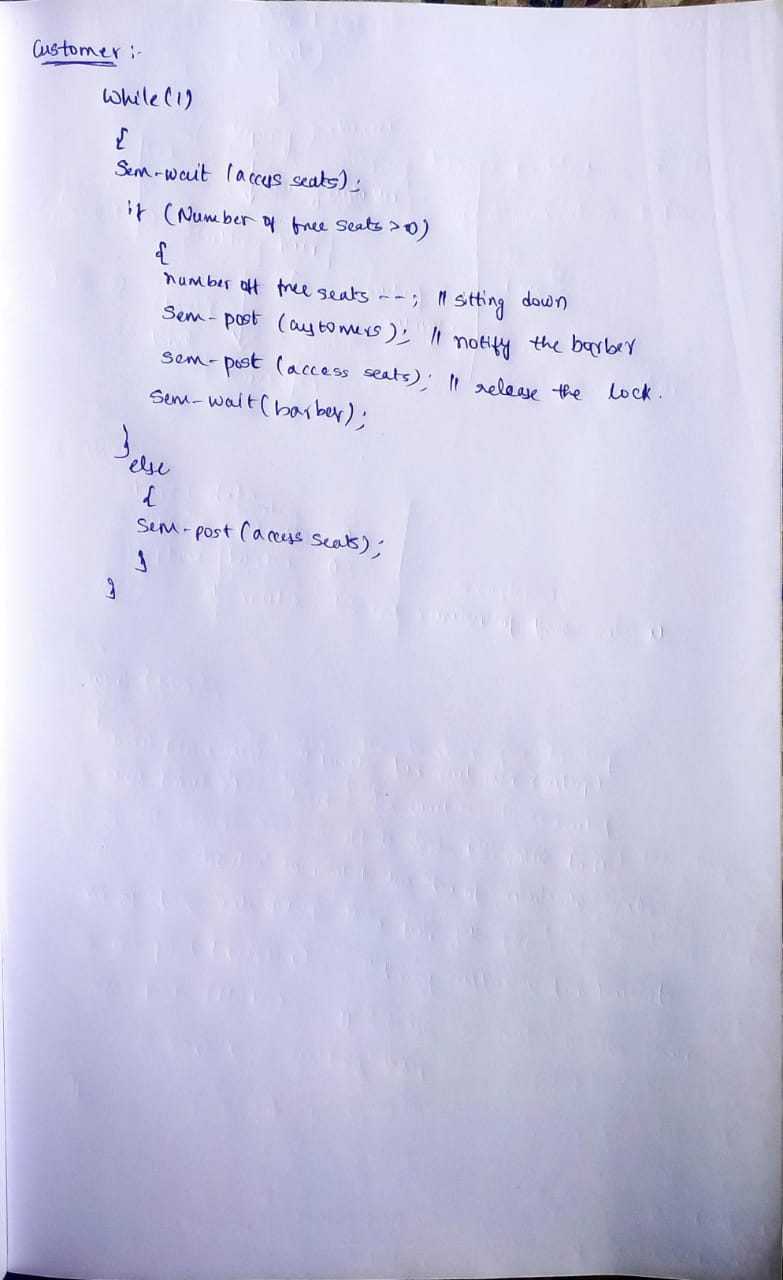 Customer :-
while(1)
{
Sem-wait (access seats);
if (Number of free seats >0)
{
number off free seats --; // sitting down
Sem-post (customers); // notify the barber
sem-post (access seats); // release the lock.
Sem-wait(barber);
}
else
{
Sem-post (access seats);
}
}